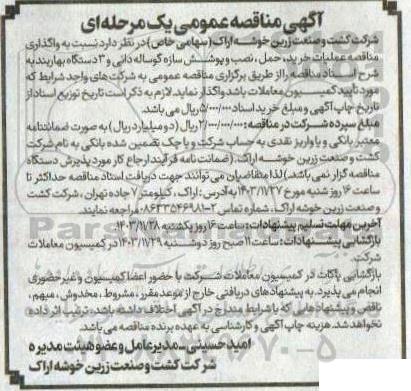 آگهی مناقصه عمومی یک مرحله‌ای
شرکت کشت و صنعت زرین خوشه اراک (سهامی خاص) در نظر دارد نسبت به واگذاری
مناقصه عملیات خرید، حمل، نصب و پوشش سازه گوساله دانی و ۳ دستگاه بهاربند به
شرح اسناد مناقصه را از طریق برگزاری مناقصه عمومی به شرکت‌های واجد شرایط که
مورد تأیید کمیسیون معاملات باشد واگذار نماید. لازم به ذکر است تاریخ توزیع اسناد از
تاریخ چاپ آگهی و مبلغ خرید اسناد ۵/۰۰۰/۰۰۰ ریال می باشد.
مبلغ سپرده شرکت در مناقصه: ۲/۰۰۰/۰۰۰/۰۰۰ ریال (دو میلیارد ریال) به صورت ضمانتنامه
معتبر بانکی و یا واریز نقدی به حساب شرکت و یا چک تضمین شده بانکی به نام شرکت
کشت و صنعت زرین خوشه اراک. (ضمانت نامه فرآیند ارجاع کار مورد پذیرش دستگاه
مناقصه گزار نمی باشد) لذا متقاضیان می توانند جهت دریافت اسناد مناقصه حداکثر تا
ساعت ۱۶ روز شنبه مورخ ۱۴۰۳/۱۱/۲۷ به آدرس: اراک، کیلومتر ۷ جاده تهران، شرکت کشت
و صنعت زرین خوشه اراک، شماره تماس مراجعه نمایند.
آخرین مهلت تسلیم پیشنهادات: ساعت ۱۶ روز یکشنبه ۱۴۰۳/۱۱/۲۸
بازگشایی پیشنهادات: ساعت ۱۱ صبح روز دوشنبه ۱۴۰۳/۱۱/۲۹ در کمیسیون معاملات
شرکت.
بازگشایی پاکات در کمیسیون معاملات شرکت با حضور اعضا کمیسیون و غیر حضوری
انجام می پذیرد. به پیشنهادهای دریافتی خارج از موعد مقرر، مشروط، مخدوش، مبهم،
ناقص و پیشنهادهایی که با شرایط مندرج در آگهی اختلاف داشته باشد، ترتیب اثر داده
نخواهد شد. هزینه چاپ آگهی و کارشناسی به عهده برنده مناقصه می باشد.
امید حسینی - مدیر عامل و عضو هیئت مدیره
شرکت کشت و صنعت زرین خوشه اراک